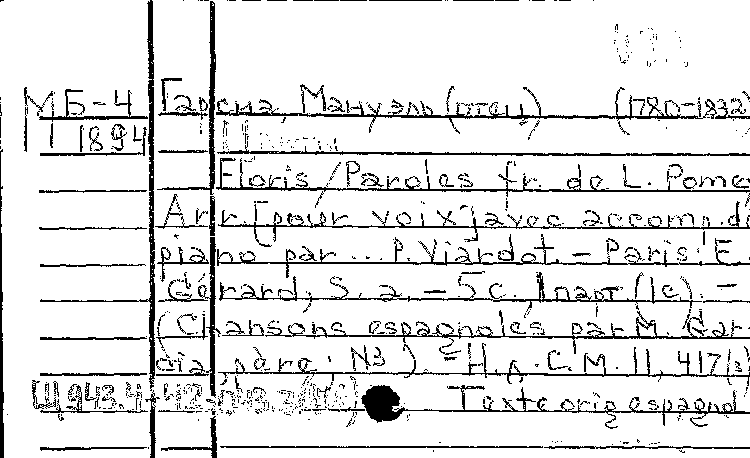 МБ-4 Гарсиа, Мануэль (отец) (1780-1832)
1894
Floris / Paroles fr. de L. Pome
Arr. [pour voix] avec accomp. di
piano par ... P. Viardot. - Paris: E.
Gérard, S. a. - 5 с., 1 парт. (1с). -
(Chansons espagnoles par M. Gar-
cia, père; N3). - Н. д. С. М. 11, 417(3)
Texte orig espagnol